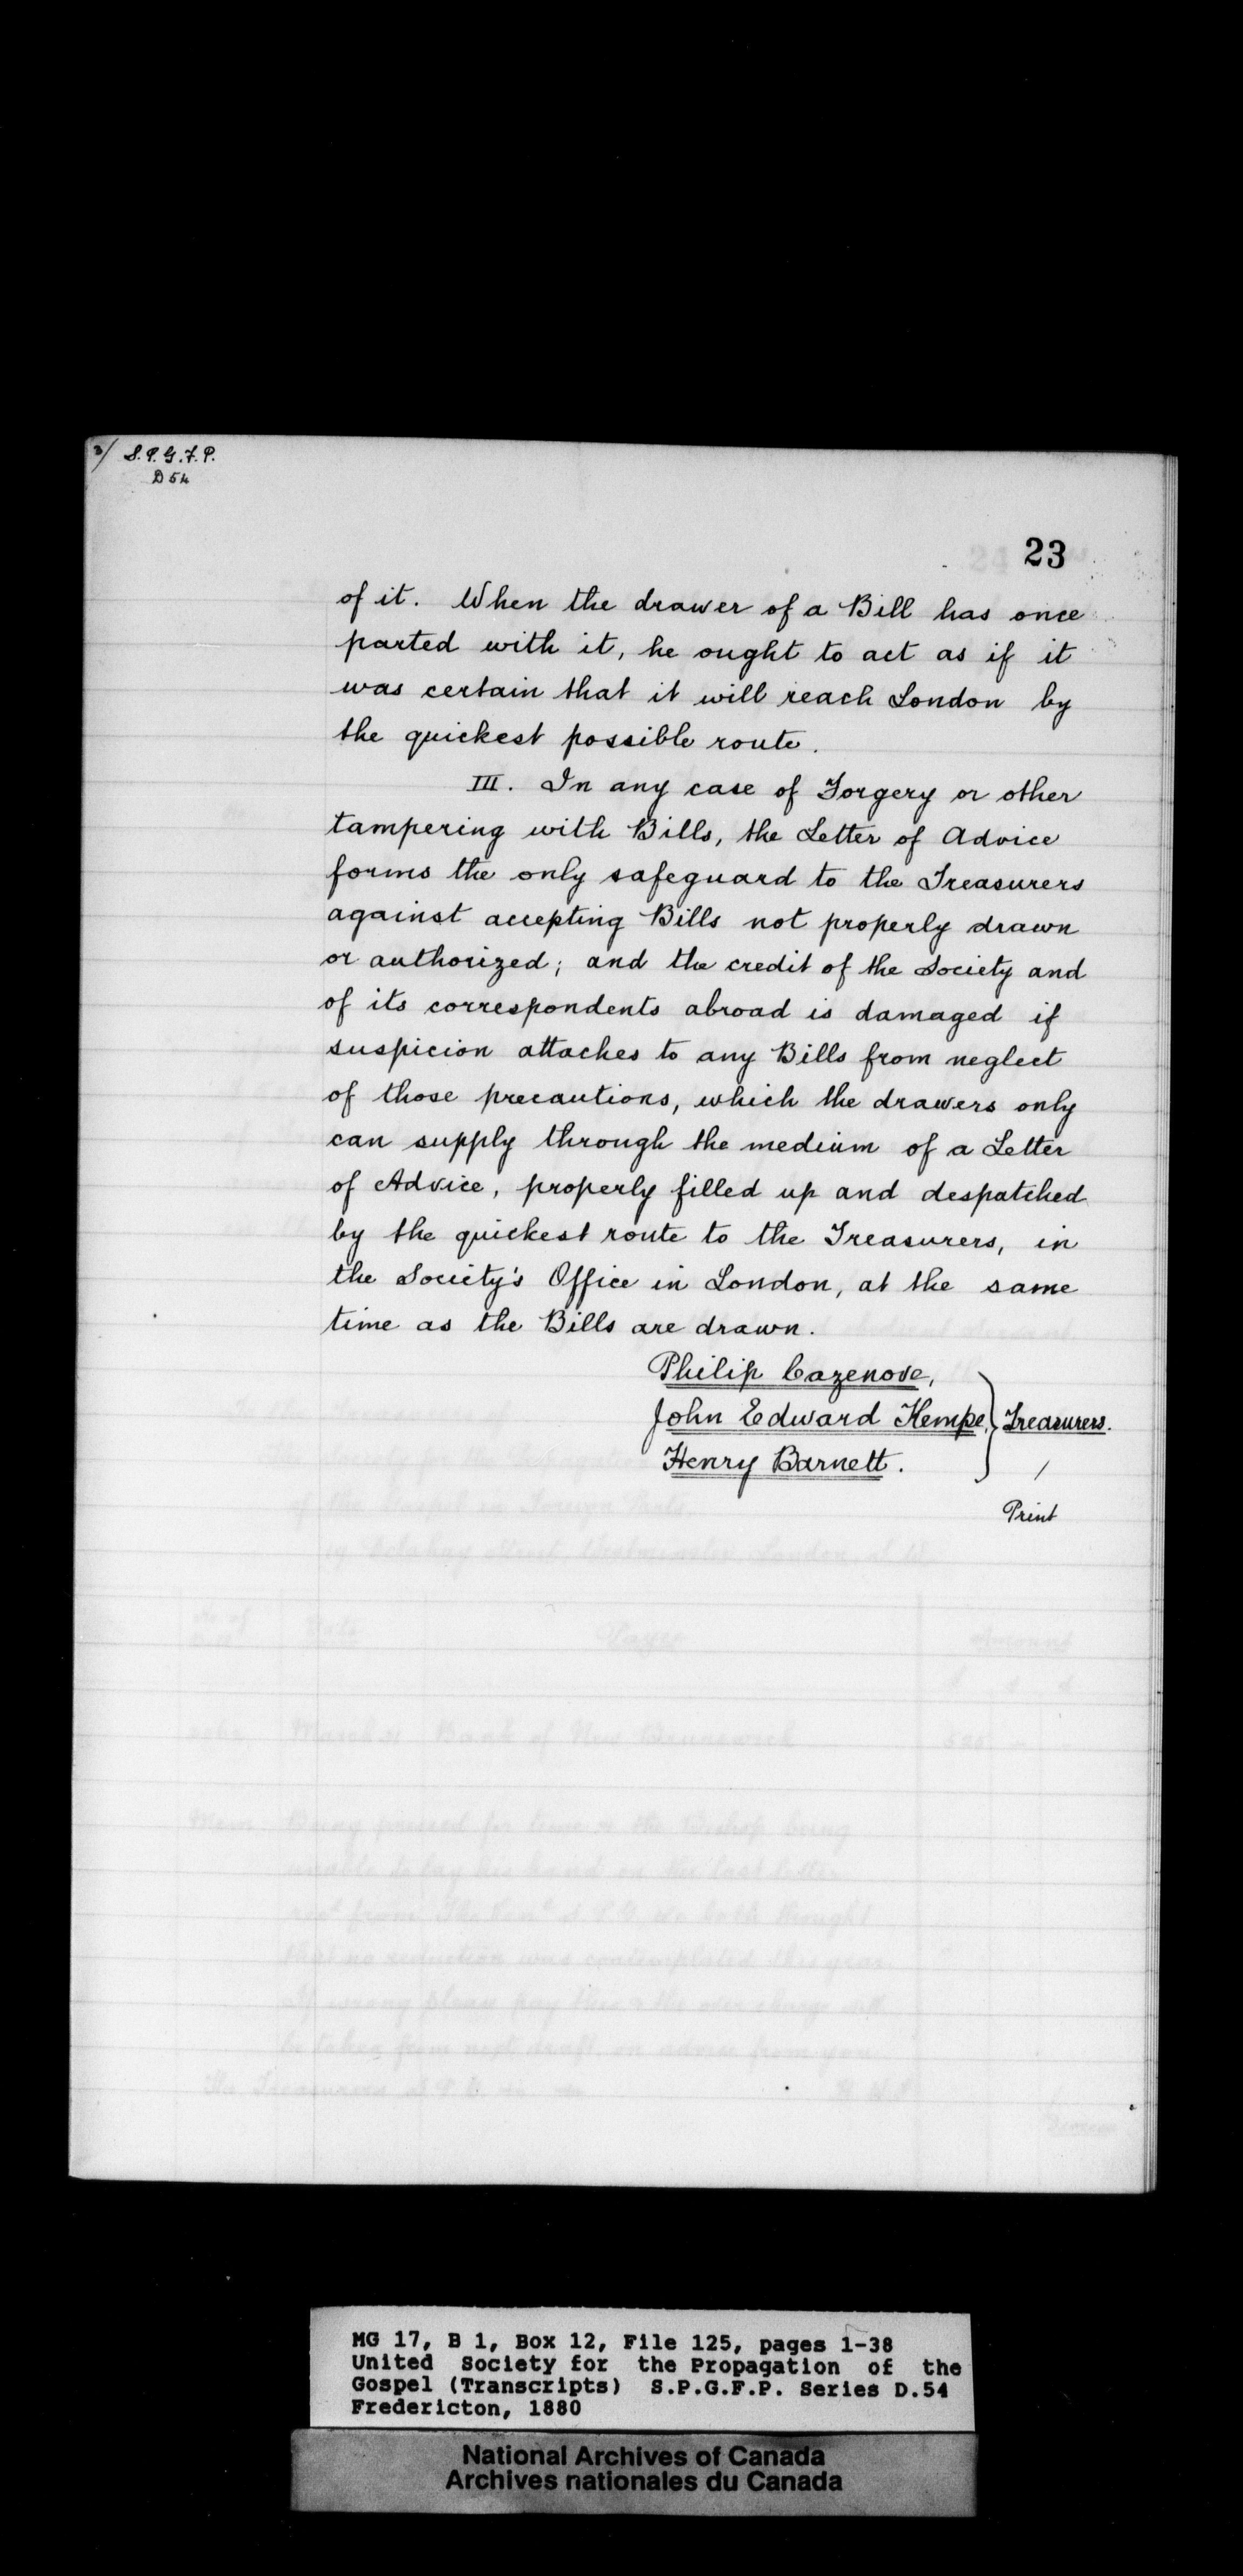 3/ S.P.G.F.P.
D 54
23
of it. When the drawer of a Bill has once
parted with it, he ought to act as if it
was certain that it will reach London by
the quickest possible route.
III. In any case of Forgery or other
tampering with Bills, the Letter of Advice
forms the only safeguard to the Treasurers
against accepting Bills not properly drawn
or authorized; and the credit of the Society and
of its correspondents abroad is damaged if
suspicion attaches to any Bills from neglect
of those precautions, which the drawers only
can supply through the medium of a Letter
of Advice, properly filled up and despatched
by the quickest route to the Treasurers, in
the Society's Office in London, at the same
time as the Bills are drawn.
Philip Cazenove,
John Edward Kempe, Treasurers.
Henry Barnett.
/
Print
MG 17, B 1, Box 12, File 125, pages 1-38
United Society for the Propagation of the
Gospel (Transcripts) S.P.G.F.P. Series D.54
Fredericton, 1880
National Archives of Canada
Archives nationales du Canada